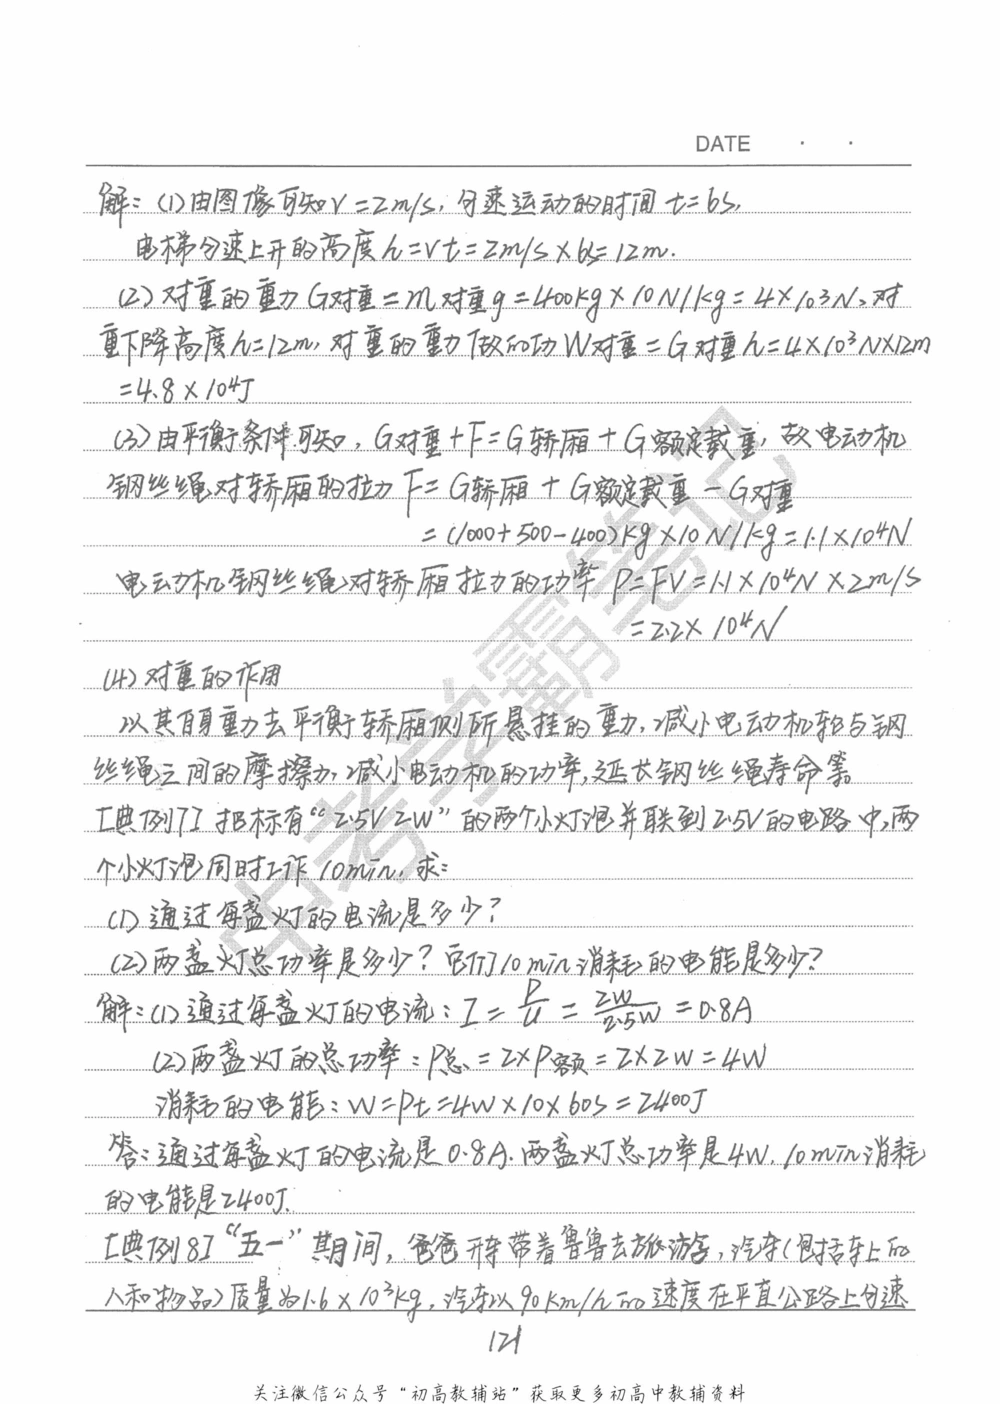 DATE · ·
解：(1)由图像可知v=2m/s，匀速运动的时间t=6s，
电梯匀速上升的高度h=vt=2m/s×6s=12m.
(2)对重的重力G对重=m对重g=400kg×10N/kg=4×10³N，对
重下降高度h=12m，对重的重力做的功W对重=G对重h=4×10³N×12m
=4.8×10⁴J
(3)由平衡条件可知，G对重+F=G轿厢+G额定载重，故电动机
钢丝绳对轿厢的拉力F=G轿厢+G额定载重-G对重
=(1000+500-400)kg×10N/kg=1.1×10⁴N
电动机钢丝绳对轿厢拉力的功率P=Fv=1.1×10⁴N×2m/s
=2.2×10⁴N
(4)对重的作用
以其自身重力去平衡轿厢侧所悬挂的重力，减小电动机轮与钢
丝绳之间的摩擦力，减小电动机的功率，延长钢丝绳寿命等。
[典例7]把标有“2.5V 2W”的两个小灯泡并联到2.5V的电路中，两
个小灯泡同时工作10min，求：
(1)通过每盏灯的电流是多少？
(2)两盏灯总功率是多少？它们10min消耗的电能是多少？
解：(1)通过每盏灯的电流：I=P/U=2W/2.5W=0.8A
(2)两盏灯的总功率：P总=2×P额=2×2W=4W
消耗的电能：W=Pt=4W×10×60s=2400J
答：通过每盏灯的电流是0.8A.两盏灯总功率是4W，10min消耗
的电能是2400J.
[典例8]“五一”期间，爸爸开车带着鲁鲁去旅游，汽车(包括车上的
人和物品)质量为1.6×10³kg，汽车以90km/h的速度在平直公路上匀速
121
关注微信公众号“初高教辅站”获取更多初高中教辅资料
中考学霸笔记